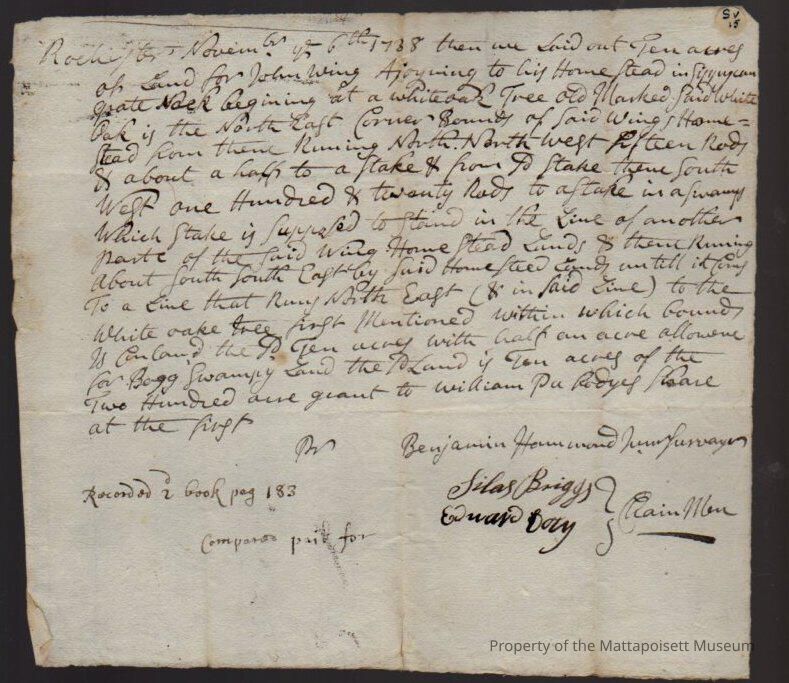 SV
15
Rochester Novembr ye 6th 1738 then we Laid out Ten acres
of Land for John Wing Ajoyning to his Homestead in
Neck begining at a white oak Tree old Marked Said white
oak is the North East Corner Bounds of Said Wings Home=
stead from thence Runing North North West fifteen Rods
& about a half to a Stake & from sd Stake thence South
West one Hundred & twenty Rods to a Stake in a Swamp
Which Stake is Supposed to Stand in the Line of another
parte of the Said Wing Home Stead Lands & thence Runing
About South South East by Said Homesteed Lands untill it Coms
To a Line that Runs North East (& in Said Line) to the
White oake tree first Mentioned within which bounds
Is the sd Ten acres with half an acre allowence
for Bogg Swampy Land the sd Land is Ten acres of the
Two Hundred acre grant to William Pabodyes Share
at the first
Pr
Benjamin Hammond Junr Survayr
Recorded 2d book pag 183
Silas Briggs
Edward Doty
Chain Men
Compared paid for
Property of the Mattapoisett Museum